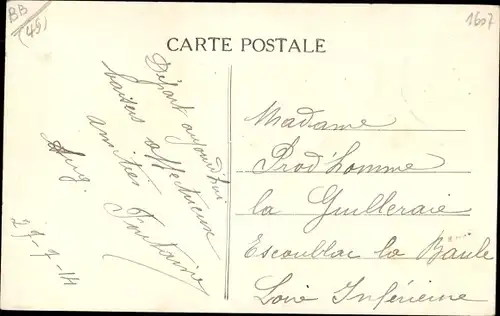 BB
(49)
1607
CARTE POSTALE
Départ aujourd'hui
baisers affectueux
amitiés Fontaine
Aug.
27-7-14
Madame
Prod'homme
la Guilleraie
Escoublac la Baule
Loire Inférieure